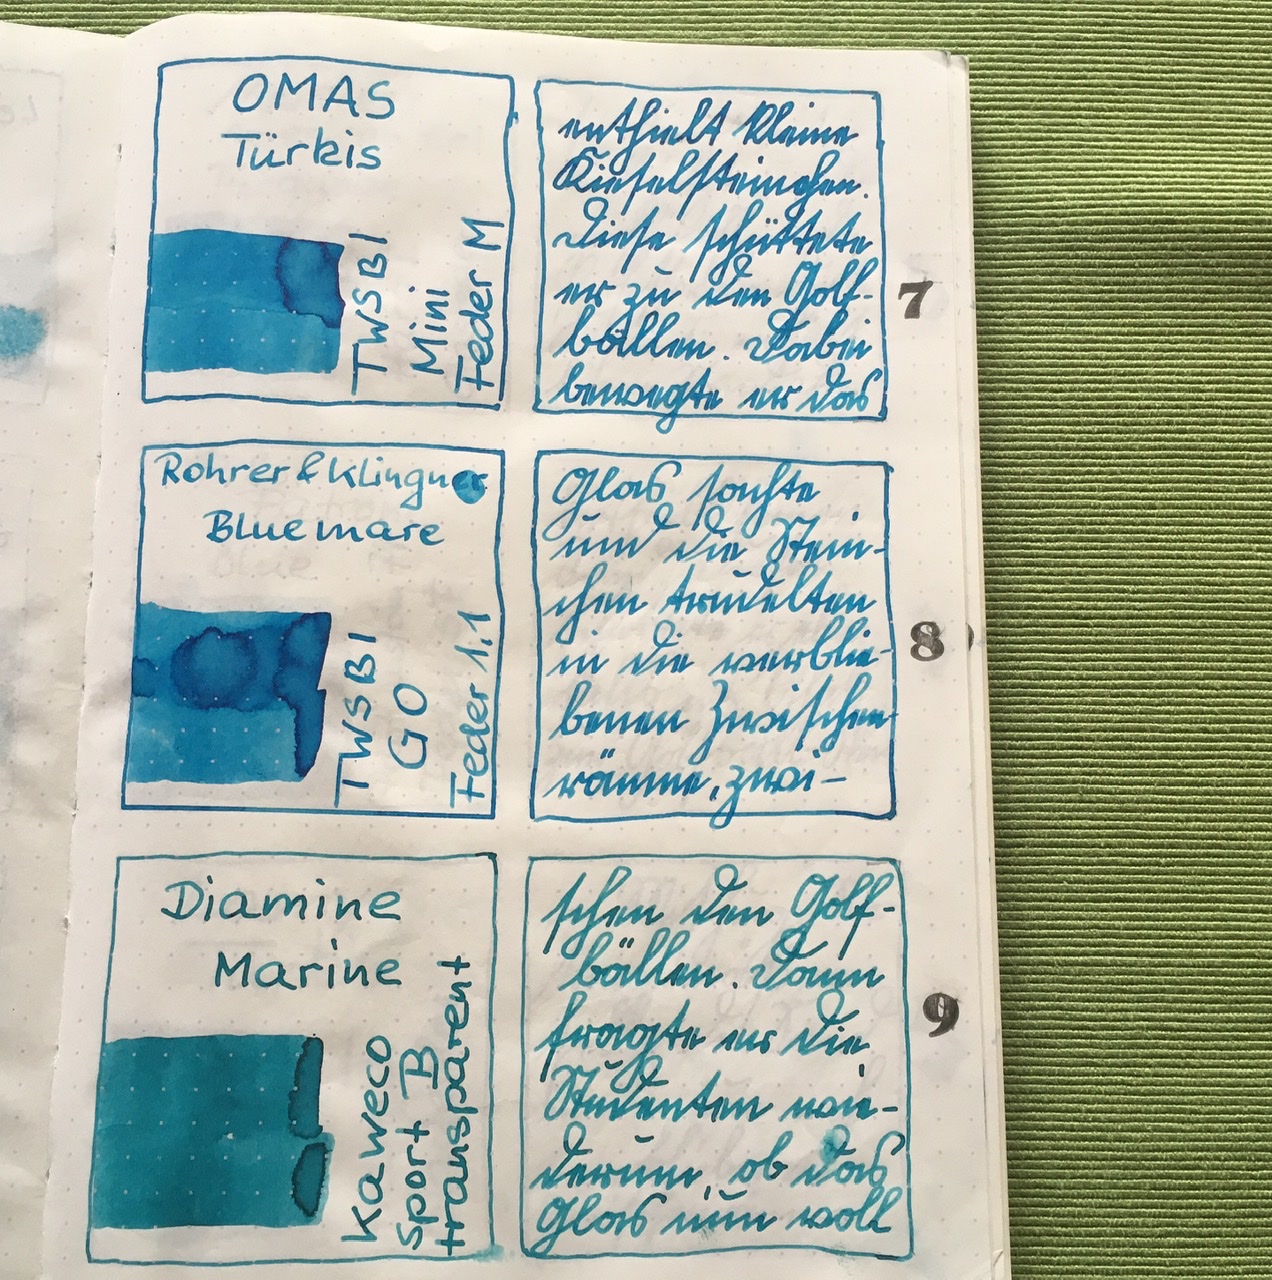 OMAS
Türkis
TWSBI
Mini
Feder M
enthielt kleine
Kieselsteinchen.
Diese schüttete
er zu den Golf-
bällen. Dabei
bewegte er das
7
Rohrer & Klingner
Blue mare
TWSBI
GO
Feder 1.1
Glas sachte
und die Stein-
chen trudelten
in die verblie-
benen Zwischen-
räume, zwi-
8
Diamine
Marine
Kaweco
Sport B
transparent
schen den Golf-
bällen. Dann
fragte er die
Studenten wie-
derum, ob das
Glas nun voll
9